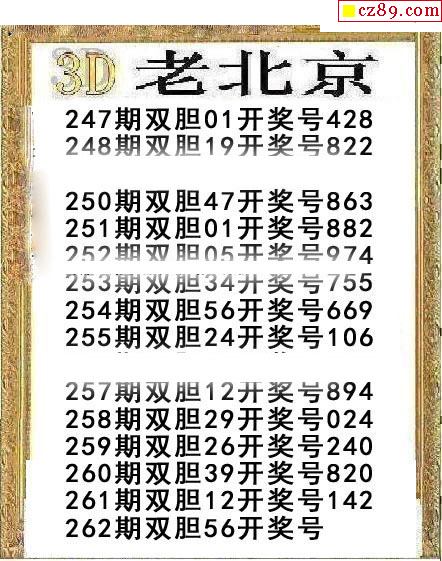 cz89.com
3D 老北京
247期双胆01开奖号428
248期双胆19开奖号822
250期双胆47开奖号863
251期双胆01开奖号882
252期双胆05开奖号974
253期双胆34开奖号755
254期双胆56开奖号669
255期双胆24开奖号106
257期双胆12开奖号894
258期双胆29开奖号024
259期双胆26开奖号240
260期双胆39开奖号820
261期双胆12开奖号142
262期双胆56开奖号